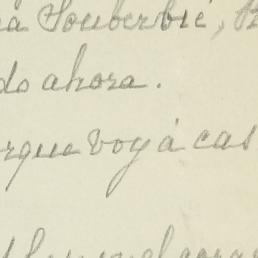 a Souberbié,
do ahora.
rque voy á cas